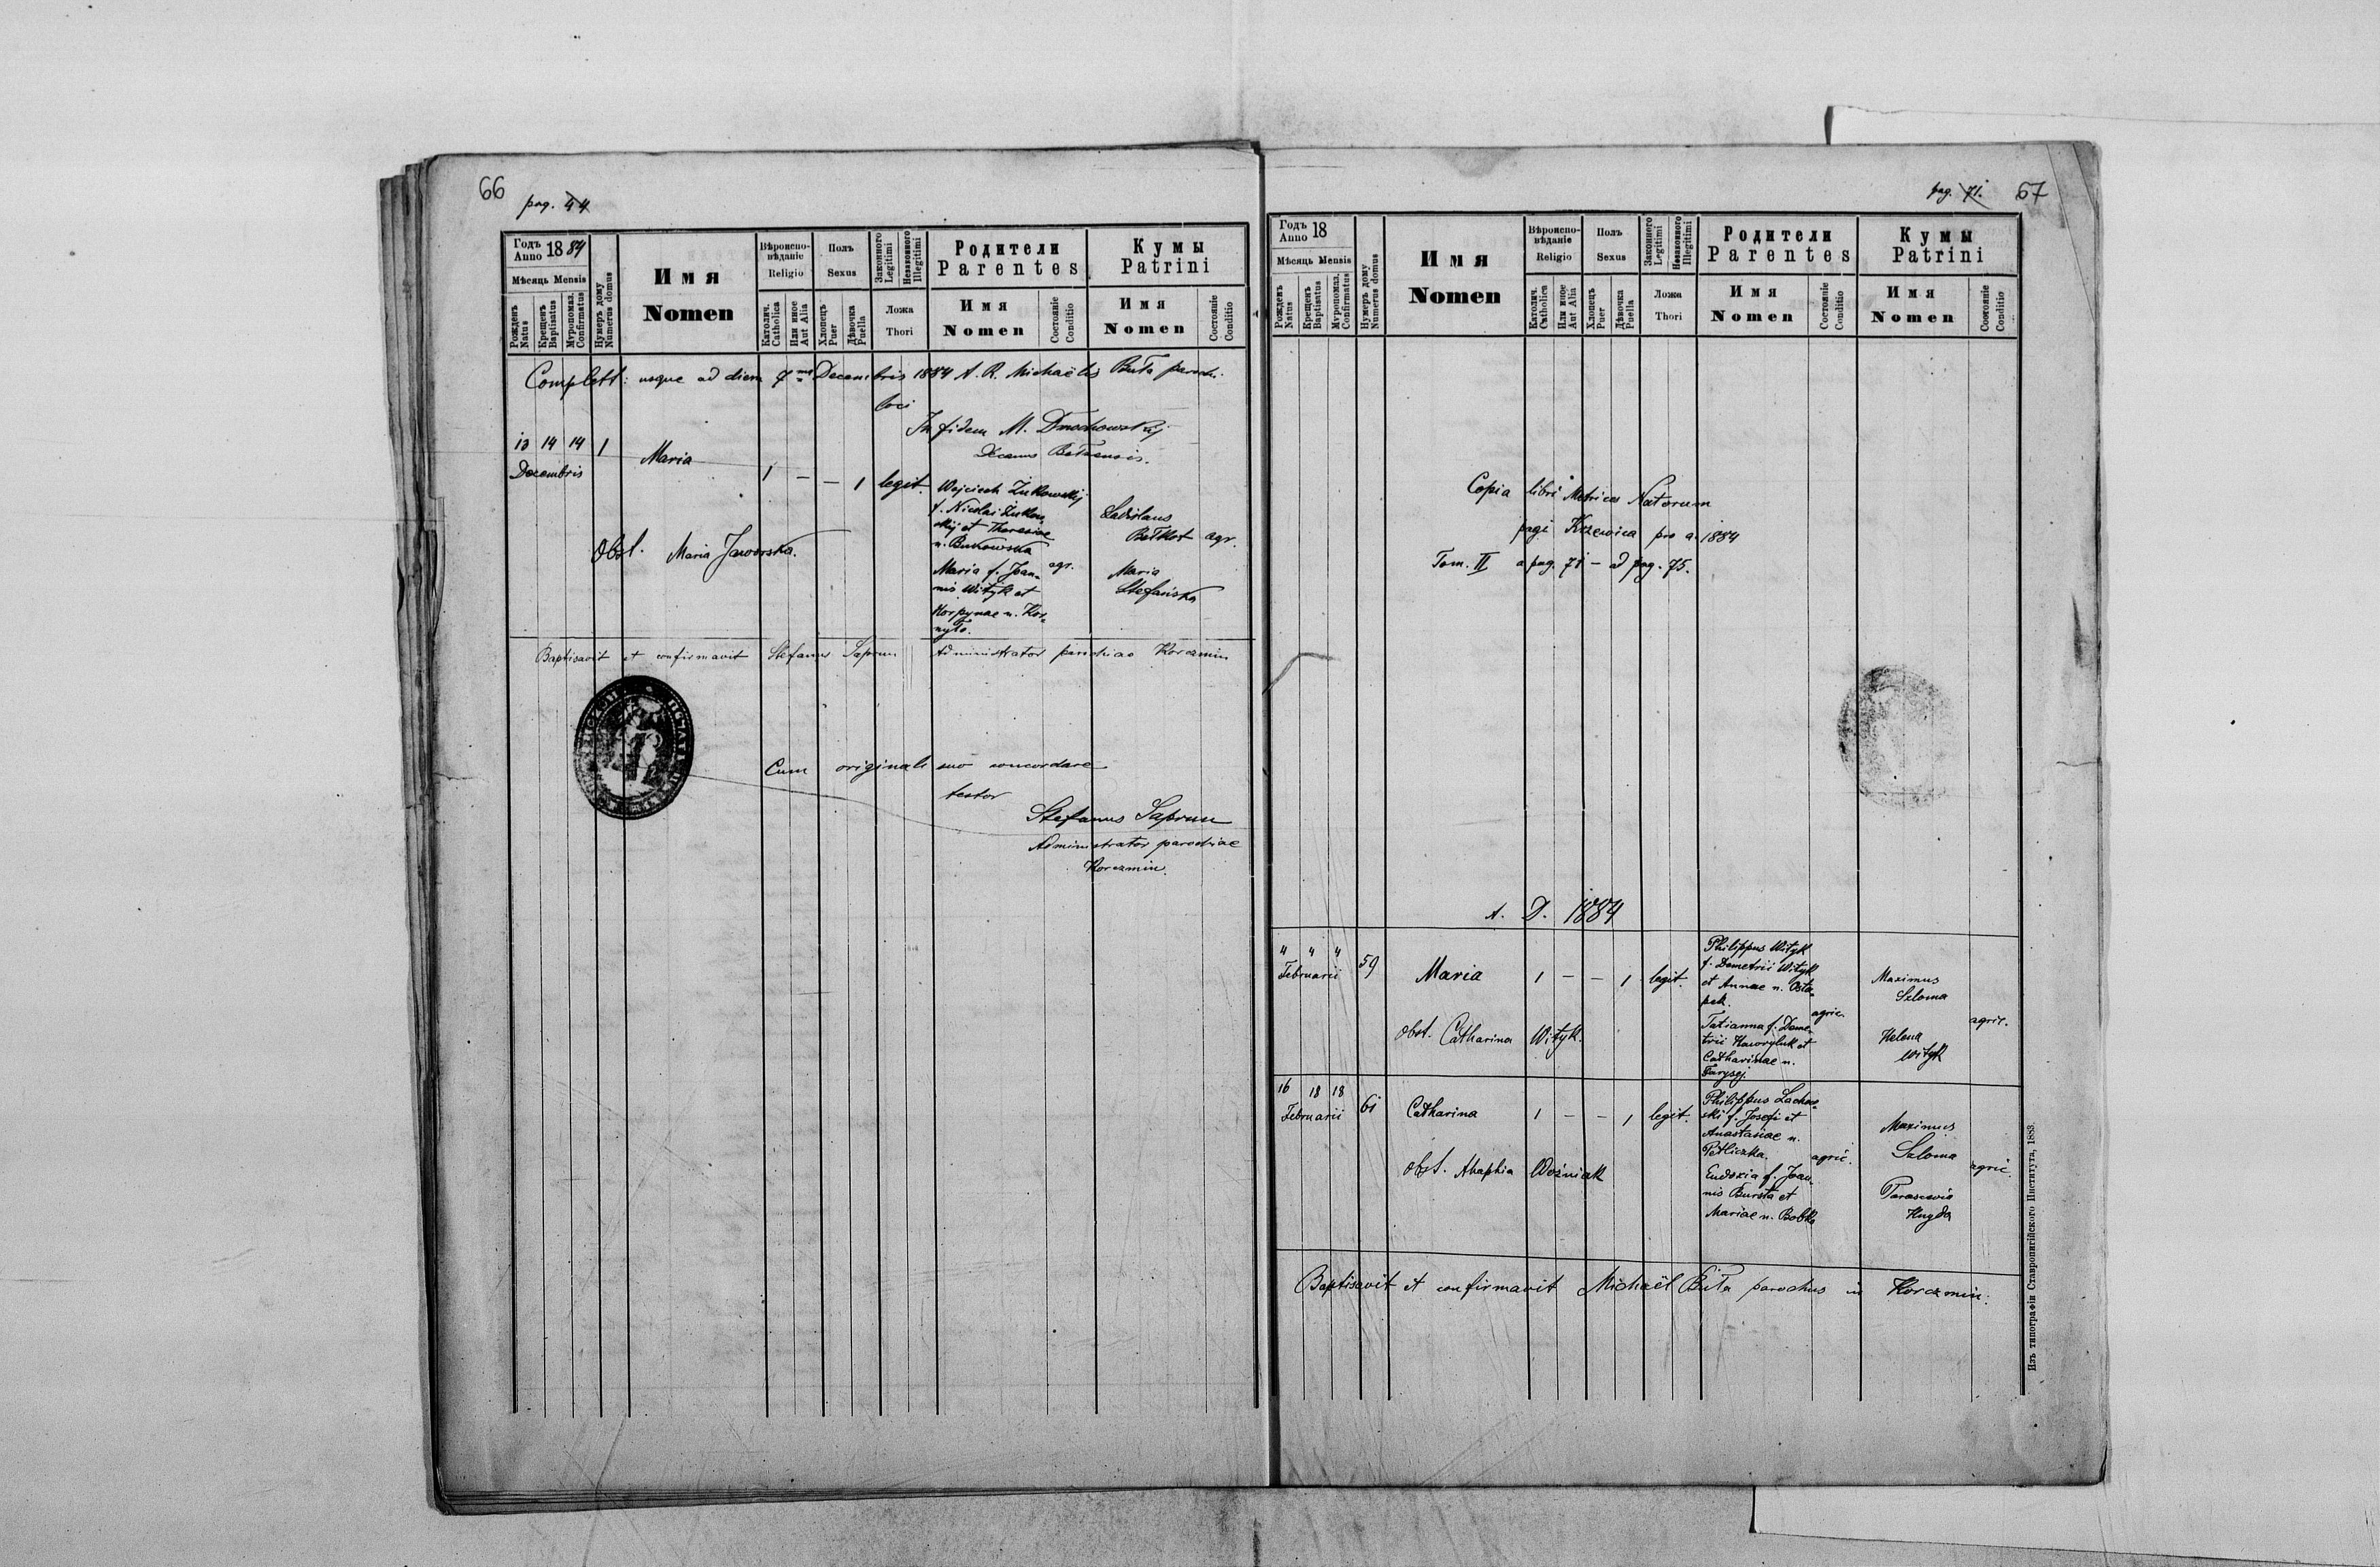 66
pag. 44
Годъ Anno 1884
Мѣсяць Mensis
Рожденъ Natus
Крещенъ Baptisatus
Муропомаз. Confirmatus
Нумеръ дому Numerus domus
Имя
Nomen
Вѣроиспо-
вѣданіе
Religio
Католич. Catholica
Или иное Aut Alia
Полъ
Sexus
Хлопецъ Puer
Дѣвочка Puella
Законного Legitimi
Незаконного Illegitimi
Ложа
Thori
Родители
Parentes
Имя
Nomen
Состояніе Conditio
Кумы
Patrini
Имя
Nomen
Состояніе Conditio
Complett: usque ad diem 7 Decembris 1884 A. R. Michaëlis Buta parochi
loci
In fidem M.
Decanus
13 14 14 1
Decembris
Maria
1 – – 1 legit.
Wojciech Żukowskij
f. Nicolai Żukow-
skij et Theresiae
n. Bukowska
agr.
Maria f. Joan-
nis Wityk et
n. Kor-
Ladislaus
agr.
Maria
Stefańska
Obst. Maria Jaworska.
Baptisavit et confirmavit Stefanus Saprun Administrator parochiae Korczmin
Cum originali suo concordare
testor
Stefanus Saprun
Administrator parochiae
Korczmin.
pag. 71. 67
Годъ Anno 18
Мѣсяць Mensis
Рожденъ Natus
Крещенъ Baptisatus
Муропомаз. Confirmatus
Нумеръ дому Numerus domus
Имя
Nomen
Вѣроиспо-
вѣданіе
Religio
Католич. Catholica
Или иное Aut Alia
Полъ
Sexus
Хлопецъ Puer
Дѣвочка Puella
Законного Legitimi
Незаконного Illegitimi
Ложа
Thori
Родители
Parentes
Имя
Nomen
Состояніе Conditio
Кумы
Patrini
Имя
Nomen
Состояніе Conditio
Copia libri Metrices Natorum
pagi Krzewica pro a. 1884
Tom. II a pag. 71 – ad pag. 75.
A. D. 1884
4 4 4 59
Februarii
Maria
1 – – 1 legit.
Philippus Wityk
f. Demetrii Wityk
et Annae n. Osta-
pek.
agric.
Tatianna f. Deme-
trii Hawryluk et
Catharinae n.
Maximus
Szloma
agric.
Helena
Wityk
Obst. Catharina Wityk.
16 18 18 61
Februarii
Catharina
1 – – 1 legit.
Philippus Lachow-
ski f. Josefi et
Anastasiae n.
Petliczka.
agric.
Eudoxia f. Joan-
nis Bursta et
Mariae n. Bobko
Maximus
Szloma
agric.
Parascevia
Hugda
Obst. Ahaphia Woźniak
Baptisavit et confirmavit Michaël Buta parochus in Korczmin.
Изъ типографіи Ставропигійского Института, 1883.